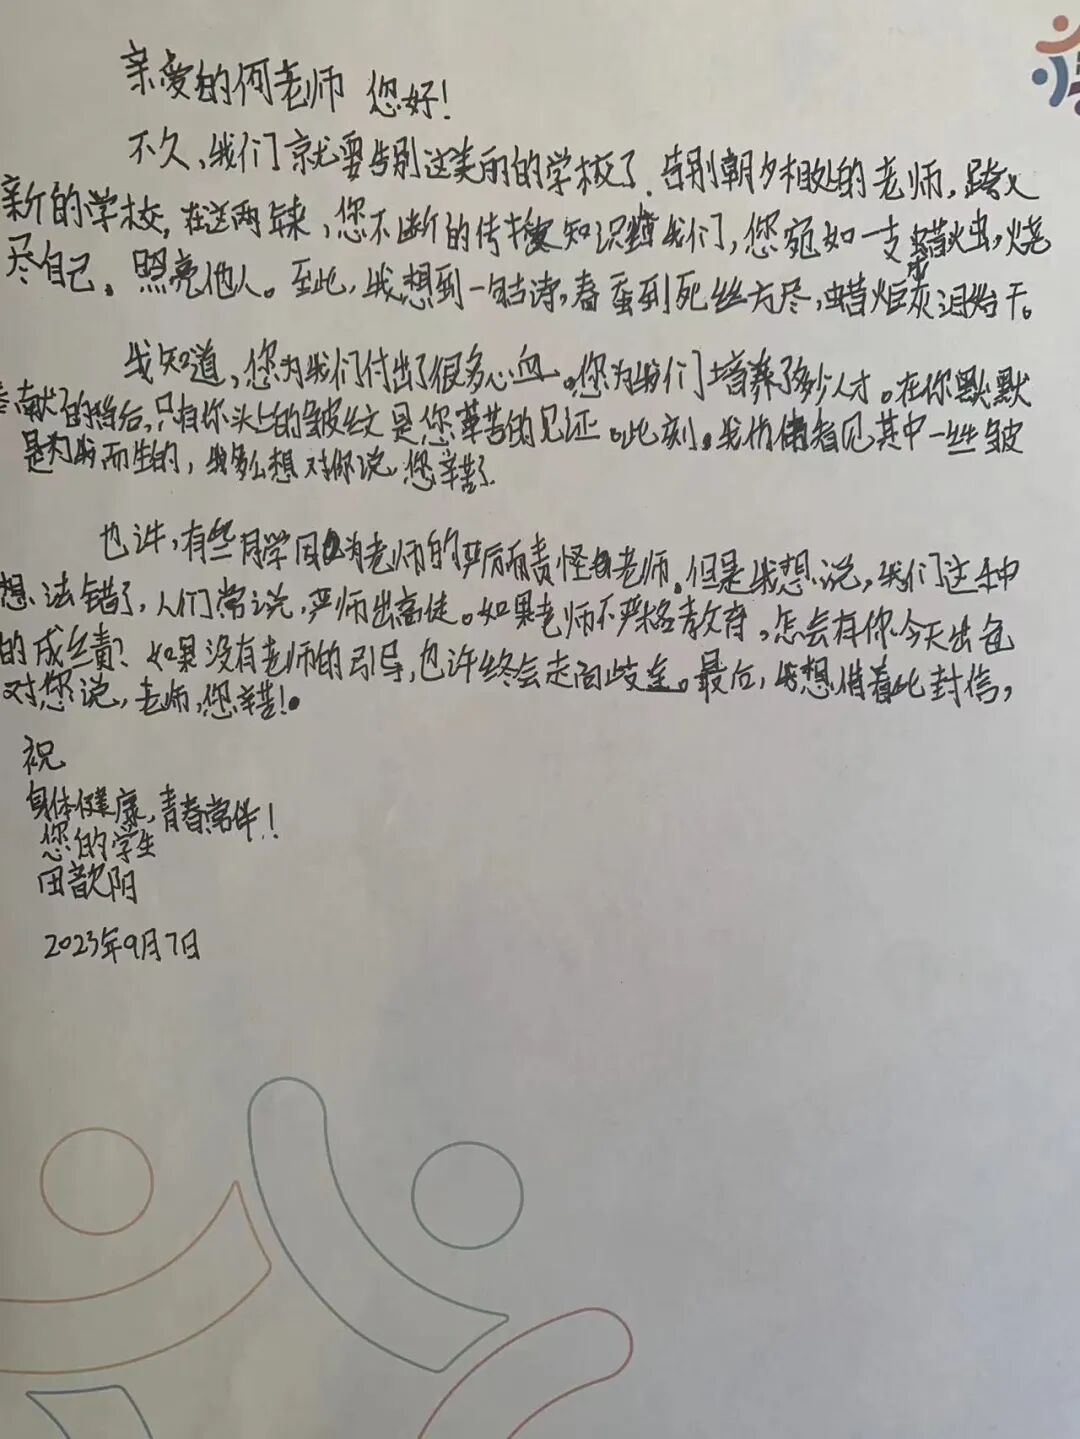 亲爱的何老师 您好!
不久、我们就要告别这美丽的学校了.告别朝夕相处的老师,跨入
新的学校,在这两年来,您不断的传授知识我们,您宛如一支蜡烛,烧
尽自己。照亮他人。至此,我想到一句古诗,春蚕到死丝方尽,蜡炬成灰泪始干。
我知道,您为我们付出了很多心血。您为我们培养了多少人才。在你默默
奉献了的背后,只有你头上的皱纹是您辛苦的见证。此刻。我仿佛看见其中一丝皱
是为我而生的,我多么想对你说 您辛苦了
也许,有些同学因为老师的严厉而责怪老师。但是我想说,我们这种
想法错了,人们常说,严师出高徒。如果老师不严格教育,怎会有你今天出色
的成绩? 如果没有老师的引导,也许终会走向歧途。最后,我想借着此封信,
对您说,老师,您辛苦!。
祝
身体健康,青春常伴!
您的学生
田歆阳
2023年9月7日